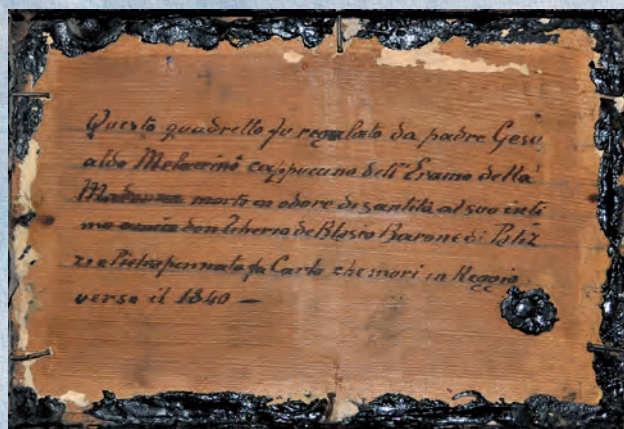 Questo quadretto fu regalato da padre Gesu
aldo Melacrinò cappuccino dell'Eramo della
Madonna morto in odore di santità al suo inti
mo amico don Tiberio de Blasio Barone di Paliz
zi e Pietrapennata fu Carlo che mori in Reggio
verso il 1840 —